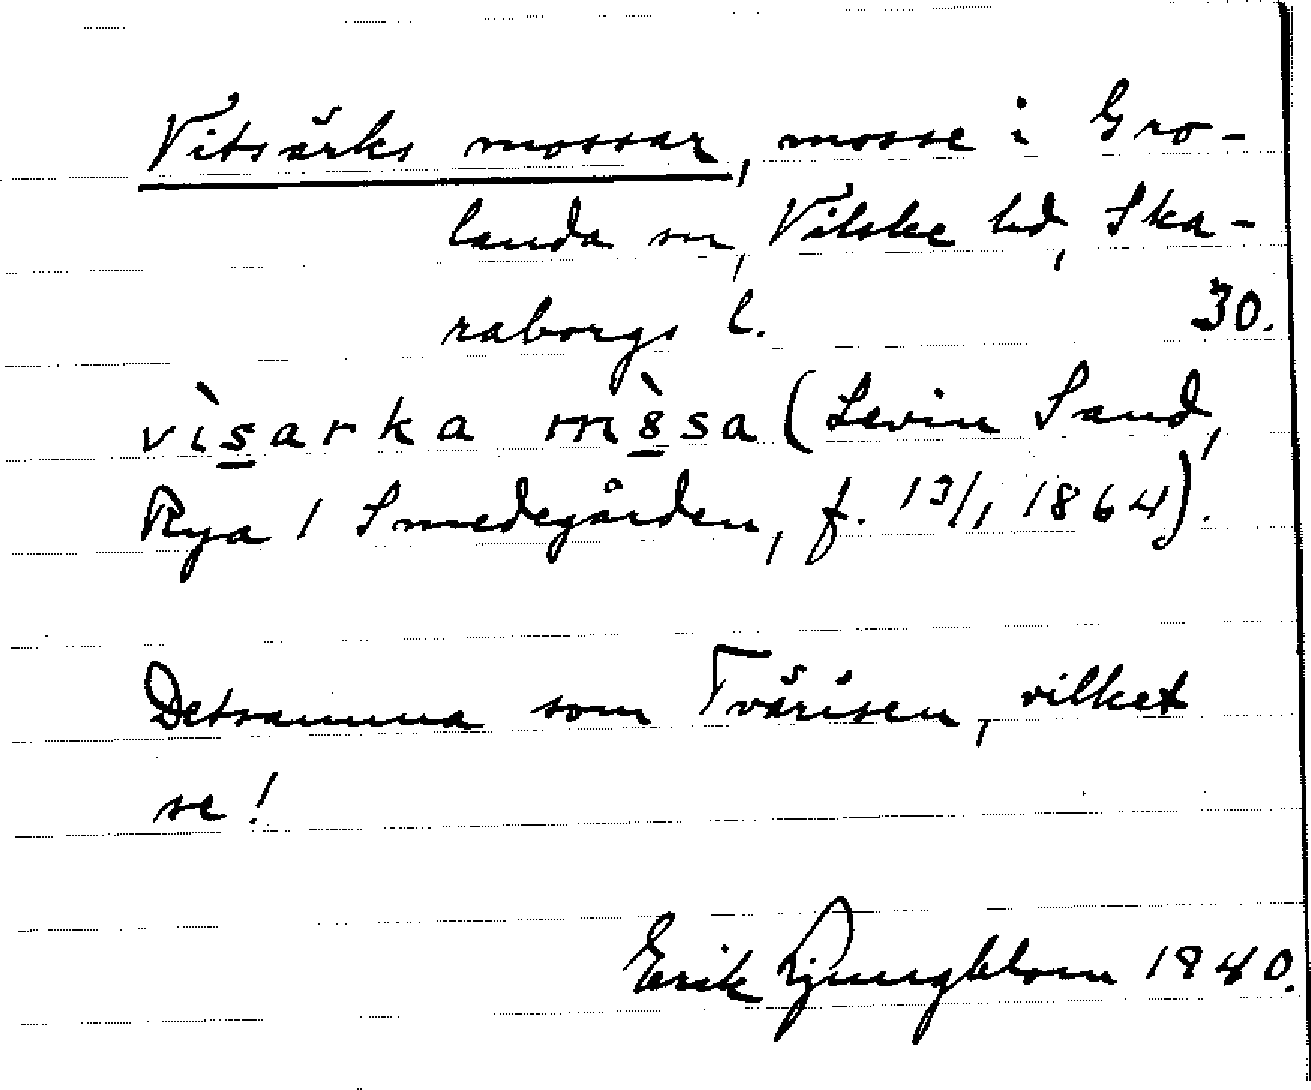 Vitsärks mossar, mosse i Gro-
landa sn, Vilske hd, Ska-
raborgs l. 30.
vìsarka m8̀sa (Levin Sand,
Rya 1 Smedegården, f. 13/1 1864).
Detsamma som Tvärisen, vilket
se!
Erik Ljungblom 1940.